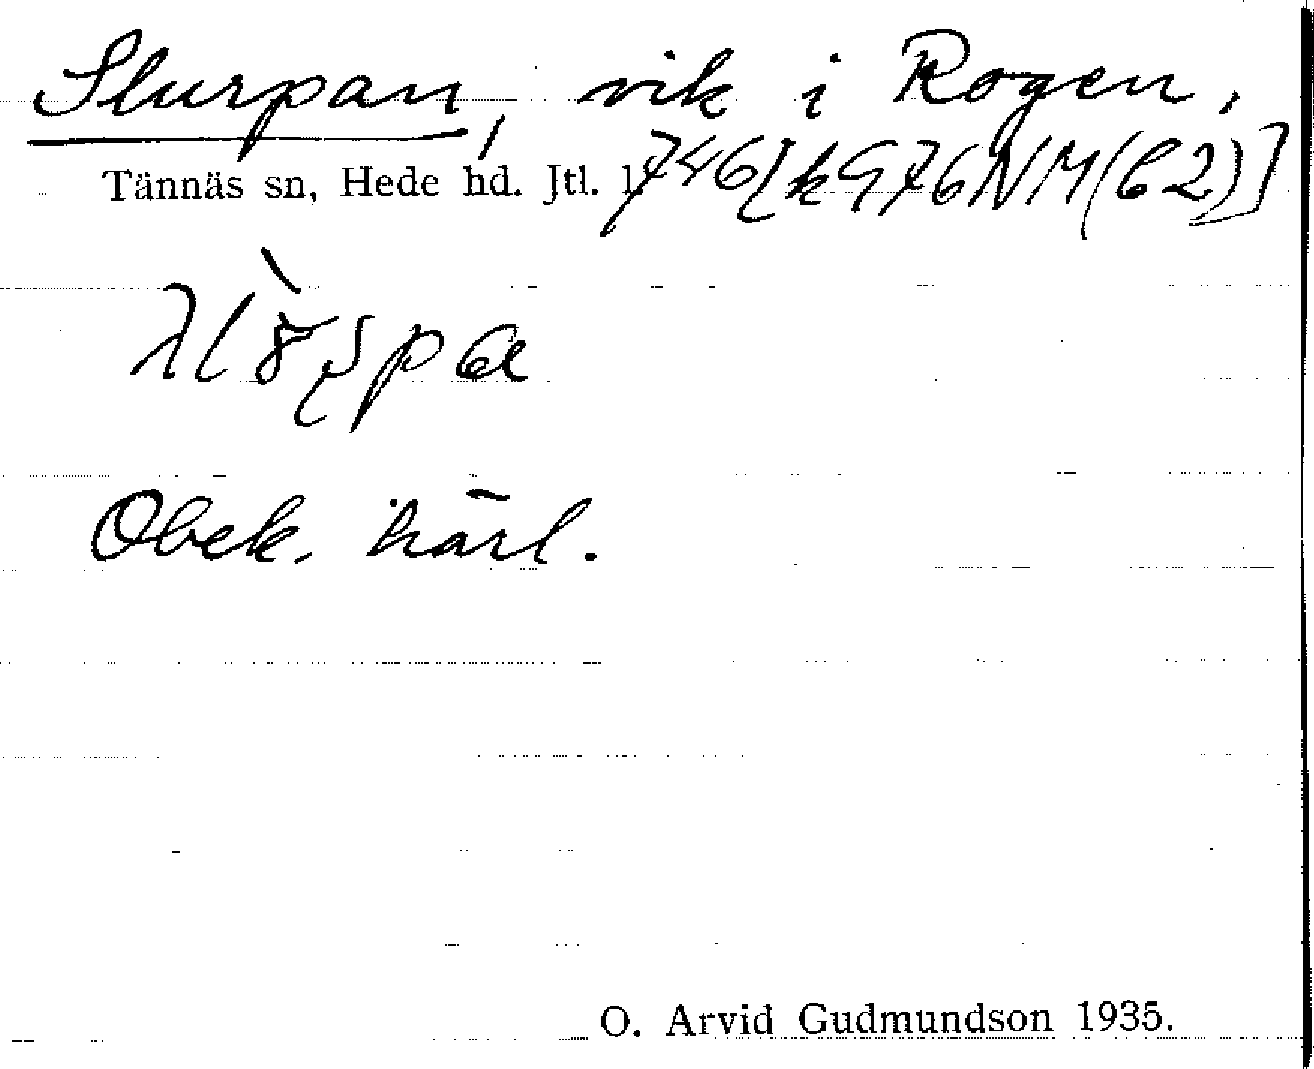 Slurpan, vik i Rogen,
Tännäs sn, Hede hd. Jtl. l. 746[k976NM(62)]
Obek. härl.
O. Arvid Gudmundson 1935.